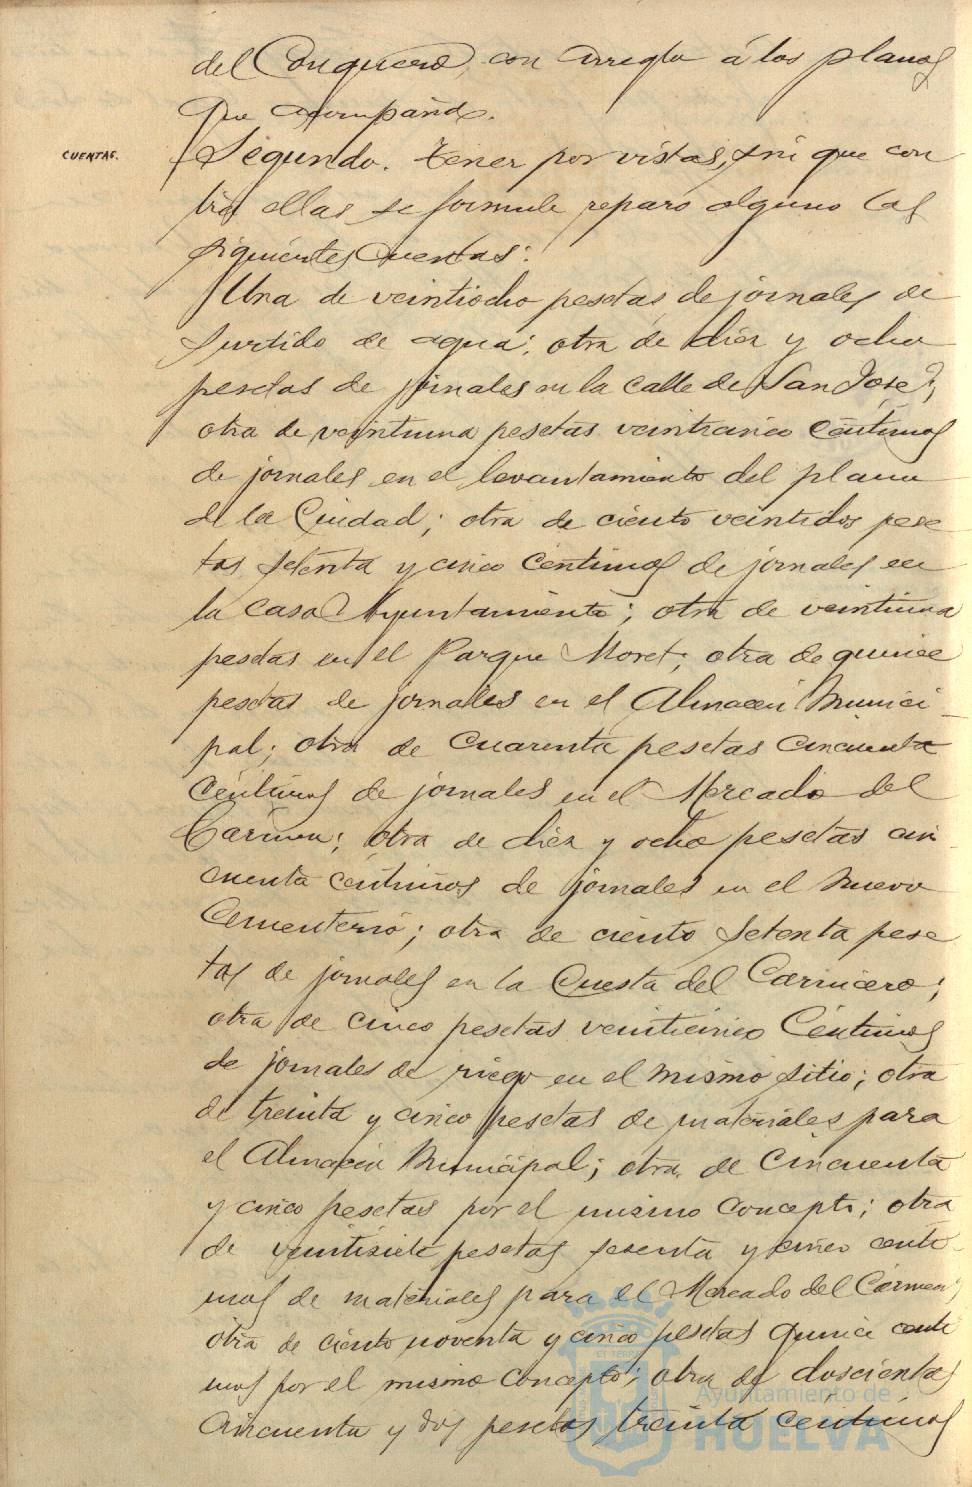 del Conquero, con arreglo á los planos
que acompaña.
CUENTAS.
Segundo. Tener por vistas, sin que con
tra ellas se formule reparo alguno las
siguientes cuentas:
Una de veintiocho pesetas de jornales de
surtido de agua; otra de diez y ocho
pesetas de jornales en la calle de San José;
otra de veintiuna pesetas veinticinco céntimos
de jornales en el levantamiento del plano
de la Ciudad; otra de ciento veintidos pese
tas setenta y cinco centimos de jornales en
la casa Ayuntamiento; otra de veintiuna
pesetas en el Parque Moret; otra de quince
pesetas de jornales en el Almacen Munici-
pal; otra de cuarenta pesetas cincuenta
céntimos de jornales en el Mercado del
Carmen; otra de diez y ocho pesetas cin-
cuenta céntimos de jornales en el nuevo
Cementerio; otra de ciento setenta pese
tas de jornales en la Cuesta del Carnicero;
otra de cinco pesetas veinticinco Céntimos
de jornales de riego en el mismo sitio; otra
de treinta y cinco pesetas de materiales para
el Almacen Municipal; otra de cincuenta
y cinco pesetas por el mismo concepto; otra
de veintisiete pesetas sesenta y cinco centi-
mos de materiales para el Mercado del Cármen;
otra de ciento noventa y cinco pesetas quince centi
mos por el mismo concepto; otra de doscientas
cincuenta y dos pesetas treinta céntimos
Ayuntamiento de
HUELVA